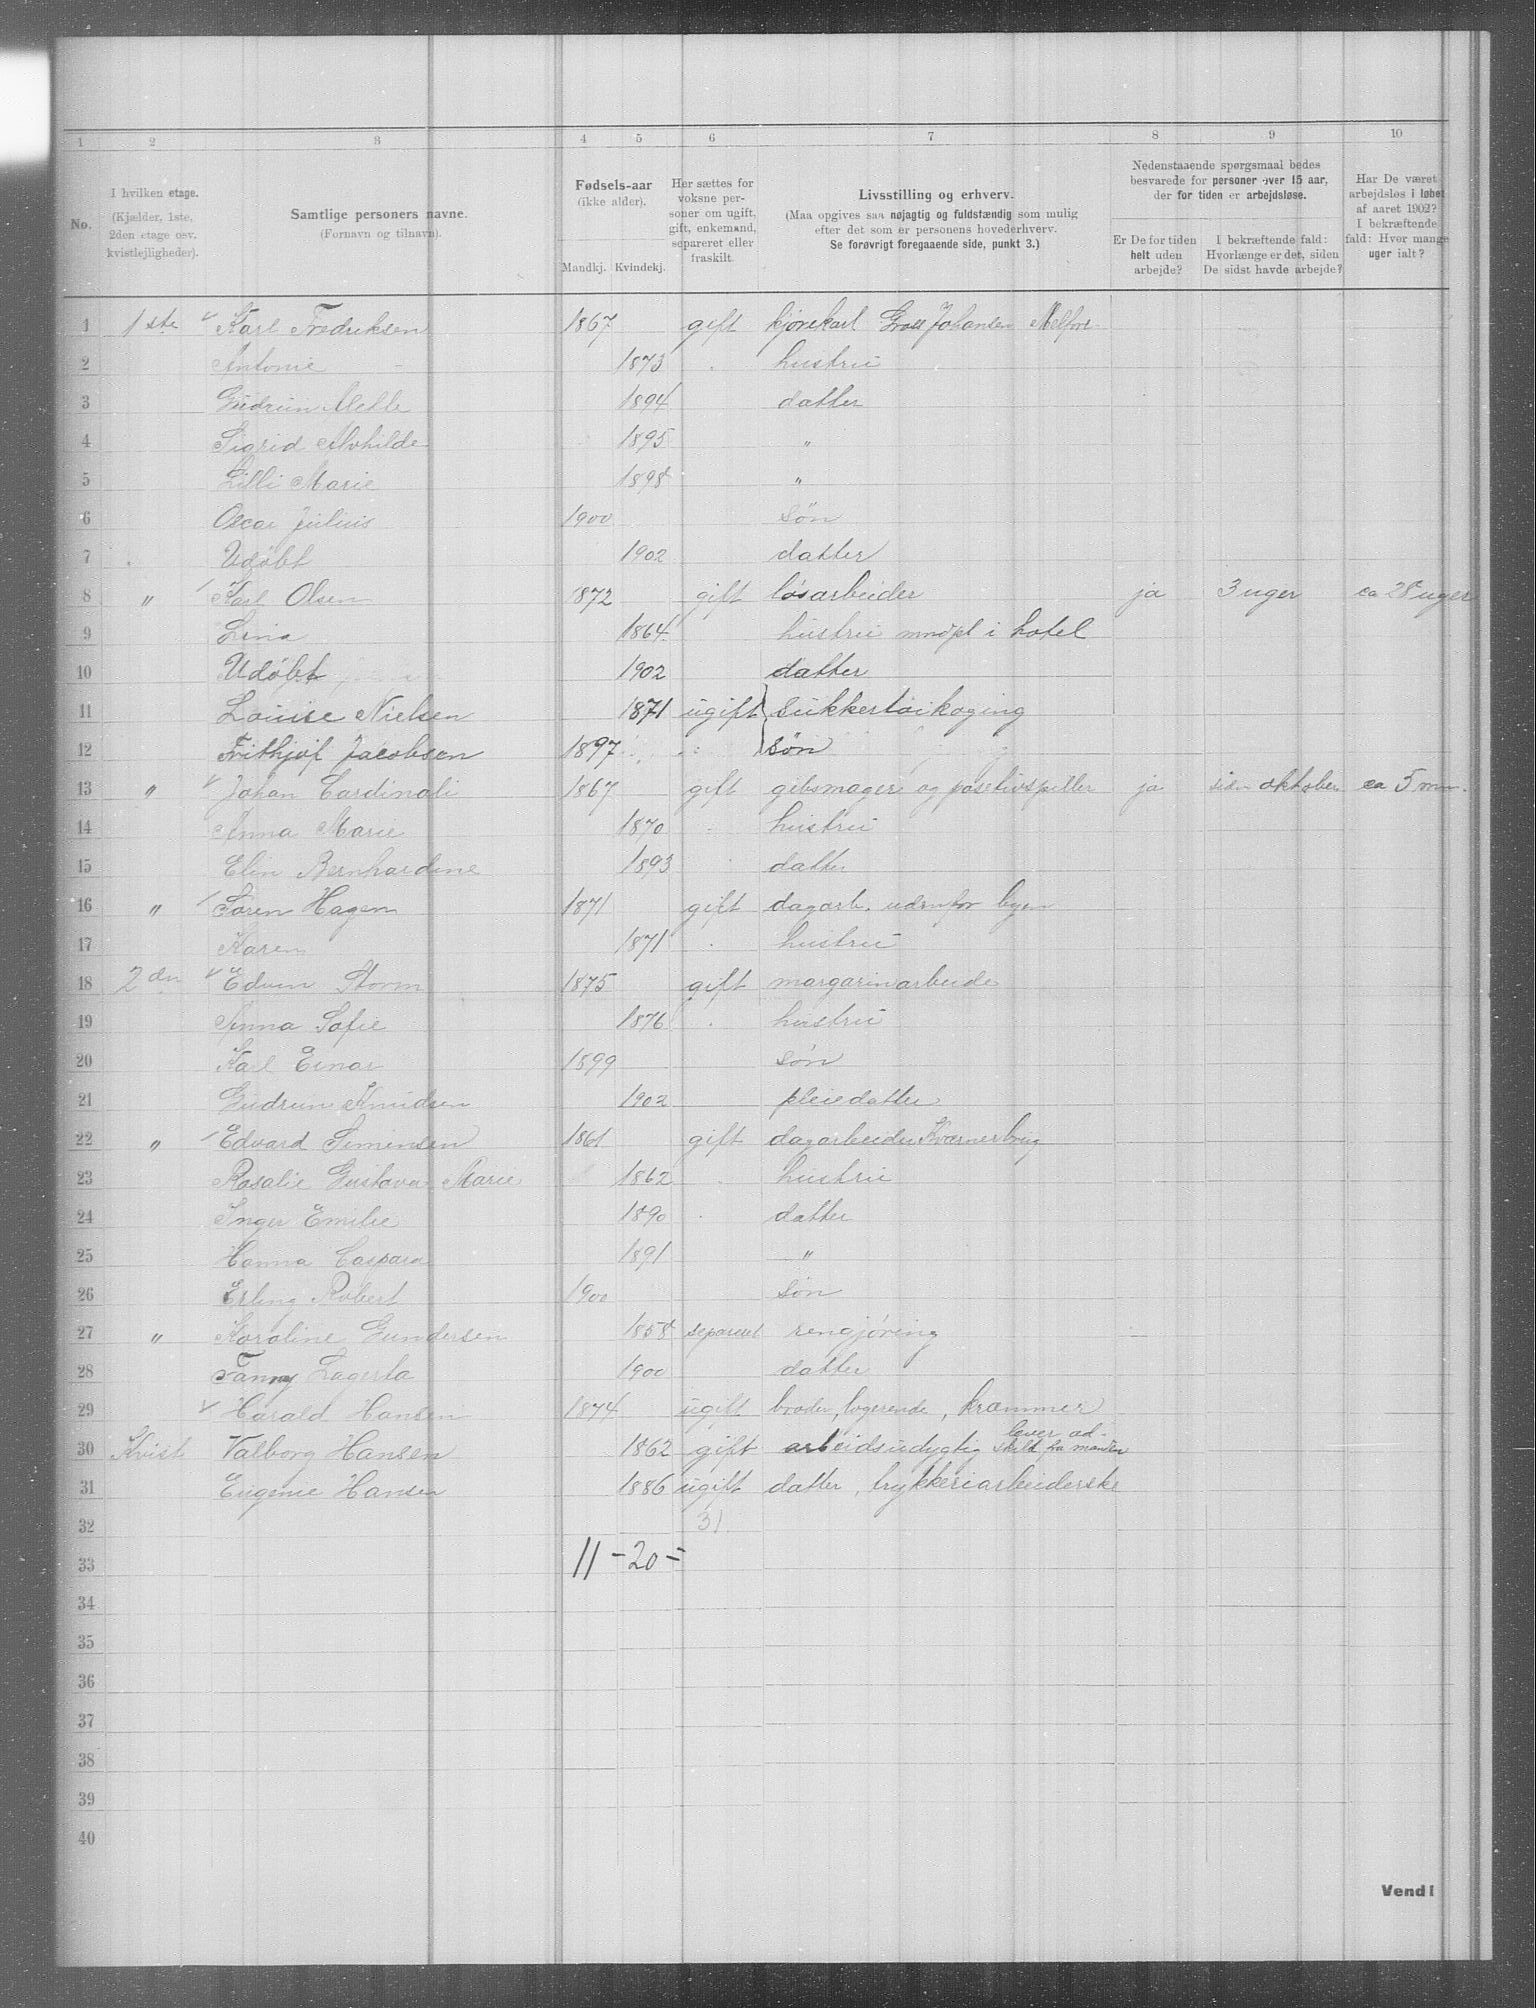 1 2 3 4 5 6 7 8 9 10
No.
I hvilken etage.
(Kjælder, 1ste,
2den etage osv.
kvistlejligheder).
Samtlige personers navne.
(Fornavn og tilnavn).
Fødsels-aar
(ikke alder).
Mandkj. Kvindekj.
Her sættes for
voksne per-
soner om ugift,
gift, enkemand,
separeret eller
fraskilt.
Livsstilling og erhverv.
(Maa opgives saa nøjagtig og fuldstændig som mulig
efter det som er personens hovederhverv.
Se forøvrigt foregaaende side, punkt 3.)
Nedenstaaende spørgsmaal bedes
besvarede for personer over 15 aar,
der for tiden er arbejdsløse.
Er De for tiden
helt uden
arbejde?
I bekræftende fald:
Hvorlænge er det, siden
De sidst havde arbejde?
Har De været
arbejdsløs i løbet
af aaret 1902?
I bekræftende
fald: Hver mange
uger ialt?
1 1ste Karl Fredriksen 1867 gift kjørekarl Johansen
2 Antonie - 1873 . hustru
3 Gudrun 1894 datter
4 Sigrid Alvhilde 1895 "
5 Lilli Marie 1898 "
6 Oscar Julius 1900 søn
7 Udøbt 1902 datter
8 " Karl Olsen 1872 gift løsarbeider ja 3 uger ca 28 uger
9 Lina 1864 hustru i hotel
10 Udøbt 1902 datter
11 Louise Nielsen 1871 ugift sukkertøikoging
12 Frithjof Jacobsen 1897 søn
13 " Johan Cardinali 1867 gift gibsmager og posetivspiller ja siden oktober ca 5 mn.
14 Anna Marie 1870 . hustru
15 Elin Bernhardine 1893 datter
16 " Søren Hagen 1871 gift dagarb. udenfor byen
17 Karen 1871 . hustru
18 2den Edvin Storm 1875 gift margarinarbeide
19 Anna Sofie 1876 . hustru
20 Karl Einar 1899 søn
21 Gudrun Knudsen 1902 pleiedatter
22 " Edvard Simensen 1861 gift dagarbeider Kværnerbrug
23 Rosalie Gustava Marie 1862 . hustru
24 Inger Emilie 1890 . datter
25 Hanna Caspara 1891 "
26 Erling Robert 1900 søn
27 " Karoline Gundersen 1858 separeret rengjøring
28 Fanny Lagerta 1900 datter
29 Harald Hansen 1874 ugift broder, logerende, kræmmer
30 Kvist Valborg Hansen 1862 gift arbeidsudygtig lever ad-
skilt fra manden
31 Eugenie Hansen 1886 ugift datter, trykkeriarbeiderske
32 31
33 11 - 20 =
34
35
36
37
38
39
40
Vend!